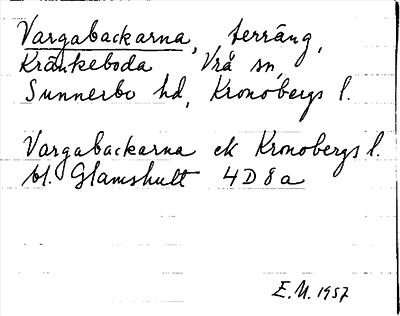 Vargabackarna, terräng,
Kränkeboda Vrå sn,
Sunnerbo hd, Kronobergs l.
Vargabackarna ek Kronobergs l.
bl. Glamshult 4D8a
E.M. 1957